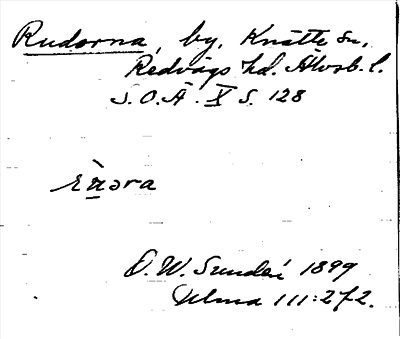 Rudorna, by, Knätte sn,
Redvägs hd. Älvsb. l.
S.O.Ä. X S. 128
O.W. Sundén 1899
Ulma 111:2 f 2.